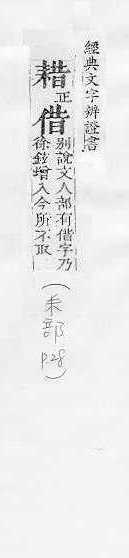 經典文字辨證書
耤正
借別說文人部有借字乃
徐鉉增入今所不取
(耒部
p.28)